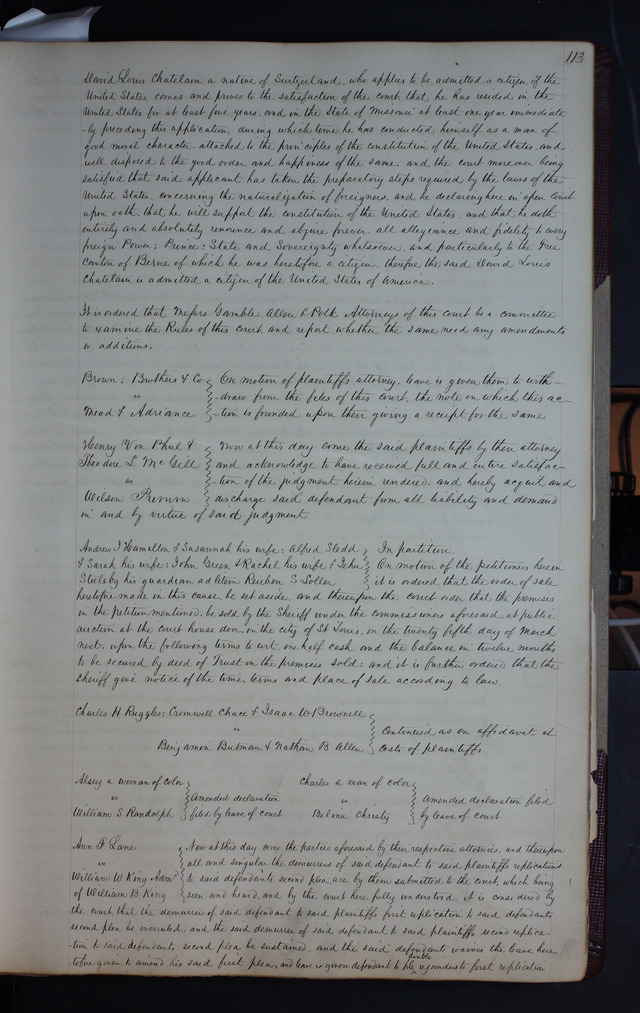 113
David Louis Chatelain a native of Switzerland, who applies to be admitted a citizen of the
United States, comes and proves to the satisfaction of the court, that he has resided in the
United States for at least five years, and in the State of Missouri at least one year immediate
-ly preceding this application, during which time he has conducted himself as a man of
good moral character, attached to the principles of the constitution of the United States, and
well disposed to the good order and happiness of the same, and the court moreover being
satisfied that said applicant has taken the preparatory steps required by the laws of the
United States, concerning the naturalization of foreigners, and he declaring here in open court
upon oath, that he will support the constitution of the United States, and that he doth
entirely and absolutely renounce and abjure forever, all allegiance and fidelity to every
foreign Power, Prince, State and Sovereignty whatsoever, and particularly to the Free
Canton of Berne of which he was heretofore a citizen, therefore the said David Louis
Chatelain is admitted a citizen of the United States of America.
It is ordered that Messrs Gamble, Allen & Polk Attorneys of this court be a committee
to examine the Rules of this court and report whether the same need any amendments
or additions.
Brown, Brothers & Co On motion of plaintiffs attorney, leave is given them to with
" -draw from the files of this court, the note on which this ac-
Mead & Adriance -tion is founded upon their giving a receipt for the same
Henry Von Phul & Now at this day come the said plaintiffs by their attorney
Theodore L McGill and acknowledge to have received full and entire satisfac-
" -tion of the judgment herein rendered, and hereby acquit and
Wilson Primm discharge said defendant from all liability and demand
in and by virtue of said judgment
Andrew J Hamilton & Susannah his wife, Alfred Sledd In partition
& Sarah his wife, John Green & Rachel his wife & John On motion of the petitioners herein
by his guardian ad litem Reuben S it is ordered that the order of sale
heretofore made in this cause, be set aside, and thereupon the court order that the premises
in the petition mentioned, be sold by the Sheriff under the commissioners aforesaid, at public
auction at the court house door, in the city of St Louis, on the twenty fifth day of March
next, upon the following terms to wit, one half cash and the balance in twelve months
to be secured by deed of Trust on the premises sold, and it is further ordered that the
Sheriff give notice of the time, terms and place of sale according to law.
Charles H Ruggles, Cromwell Chace & Isaac W Brownell
" Continued as on affidavit at
Benjamin Butman & Nathan B Allen costs of plaintiffs
Alsey a woman of color Charles a man of color
" Amended declaration " Amended declaration filed
William S Randolph filed by leave of court Belina Christy by leave of court
Ann F Lane Now at this day come the parties aforesaid by their respective attornies, and thereupon
" all and singular the demurrers of said defendant to said plaintiffs replications
William W King Admr to said defendants second plea, are by them submitted to the court, which being
of William B King seen and heard, and by the court here fully understood, it is considered by
the court that the demurrer of said defendant to said plaintiffs first replication to said defendants
second plea be overruled, and the said demurrer of said defendant to said plaintiffs second replica-
-tion to said defendants second plea be sustained, and the said defendant waives the leave here
tofore given to amend his said first plea, and leave is given defendant to file double rejoinder to first replication